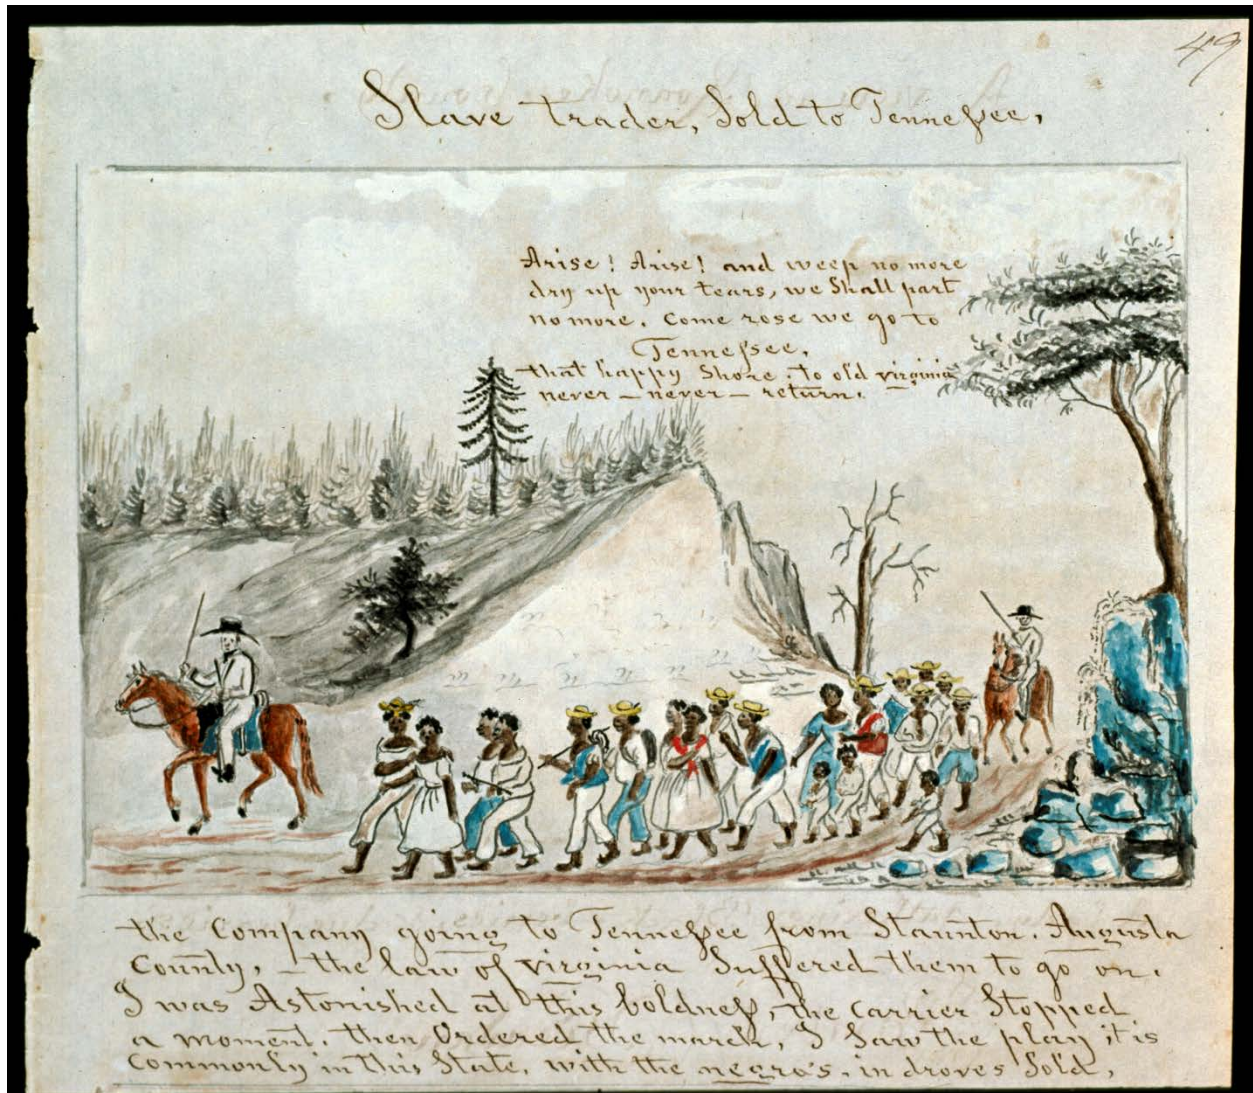 49
Slave trader, Sold to Tennessee,
Arise! Arise! and weep no more
dry up your tears, we Shall part
no more. Come rose we go to
Tennessee,
that happy Shore. to old virginia
never – never – return.
the Company going to Tennessee from Staunton. Augusta
County, – the law of virginia Suffered them to go on.
I was Astonished at this boldness, the carrier Stopped
a moment. then Ordered the march, I Saw the play it is
Commonly in this State, with the negro's. in droves Sold,